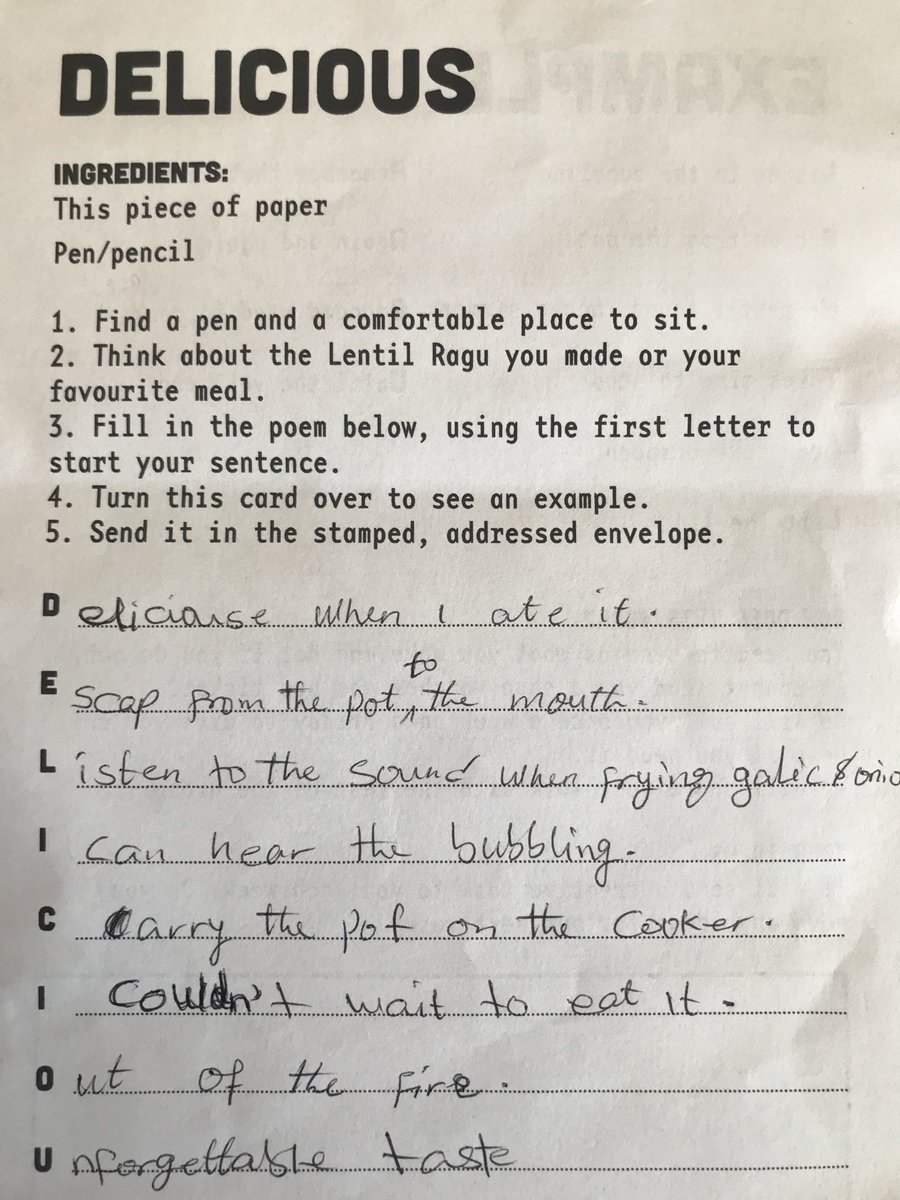 DELICIOUS
INGREDIENTS:
This piece of paper
Pen/pencil
1. Find a pen and a comfortable place to sit.
2. Think about the Lentil Ragu you made or your
favourite meal.
3. Fill in the poem below, using the first letter to
start your sentence.
4. Turn this card over to see an example.
5. Send it in the stamped, addressed envelope.
D eliciouse when I ate it.
E scap from the pot to the mouth.
L isten to the sound when frying galic & onio
I can hear the bubbling.
C Carry the pot on the Cooker.
I Couldn't wait to eat it.
O ut of the fire.
U nforgettable taste